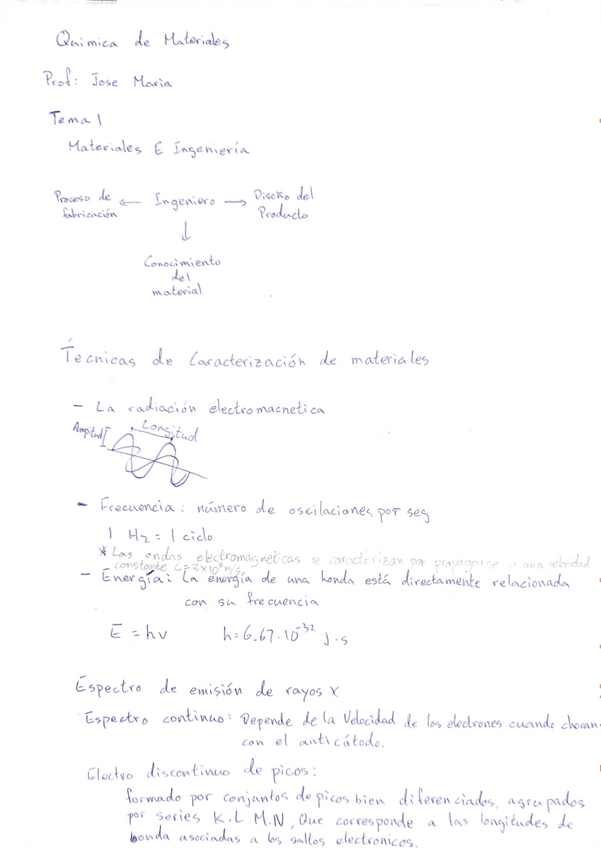 Quimica de Materiales
Prof: Jose Maria
Tema 1
Materiales E Ingeniería
Proceso de fabricación ← Ingeniero → Diseño del Producto
↓
Conocimiento
del
material
Técnicas de Caracterización de materiales
- La radiación electromacnetica
Amplitud Longitud
- Frecuencia: número de oscilaciones por seg
1 Hz = 1 ciclo
* Las ondas electromagneticas se caracterizan por propagarse a una velocidad
constante C=3x10⁸m/s
- Energía: La energía de una honda está directamente relacionada
con su frecuencia
E = hν h=6.67·10⁻³² j·s
Espectro de emisión de rayos X
Espectro continuo: Depende de la Velocidad de los electrones cuando chocan
con el anticátodo.
Electro discontinuo de picos:
formado por conjuntos de picos bien diferenciados, agrupados
por series K.L M.N, Que corresponde a las longitudes de
honda asociadas a los saltos electronicos.